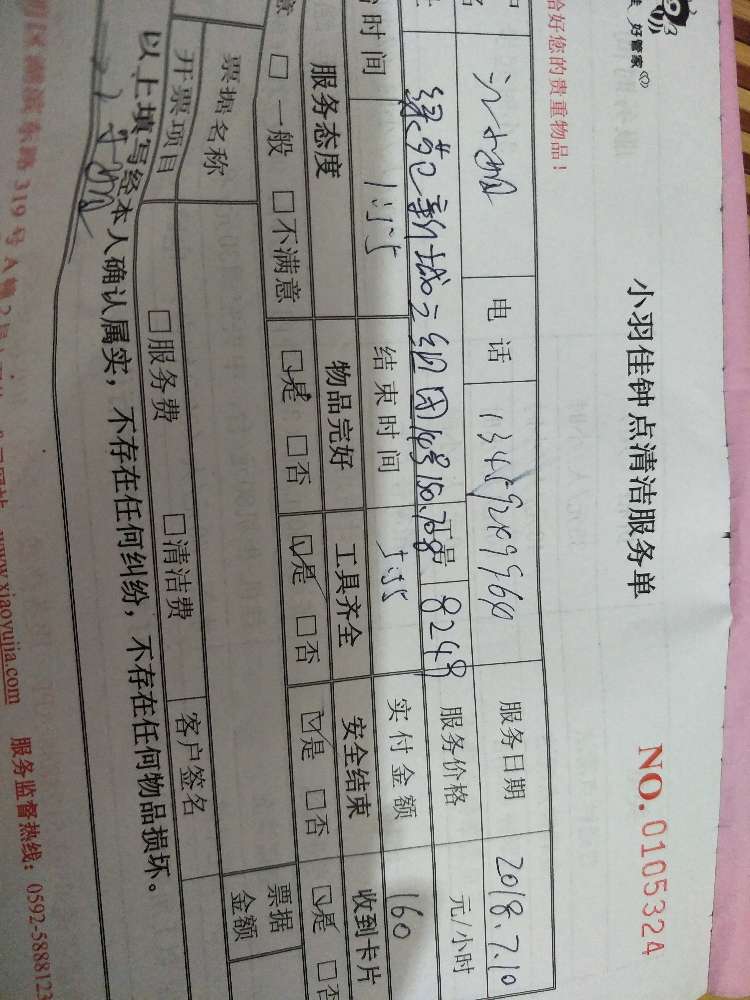 好管家
小羽佳钟点清洁服务单
NO.0105324
恰好您的贵重物品！
电话 13459209960 服务日期 2018.7.10
8248 服务价格 元/小时
时间 结束时间 实付金额 160
服务态度 物品完好 工具齐全 安全结束 收到卡片
□一般 □不满意 □是 □否 □是 □否 □是 □否 □是 □否
票据名称 票据金额
开票项目 □服务费 □清洁费 客户签名
以上填写经本人确认属实，不存在任何纠纷，不存在任何物品损坏。
319号A
www.xiaoyujia.com 服务监督热线：0592-5888123